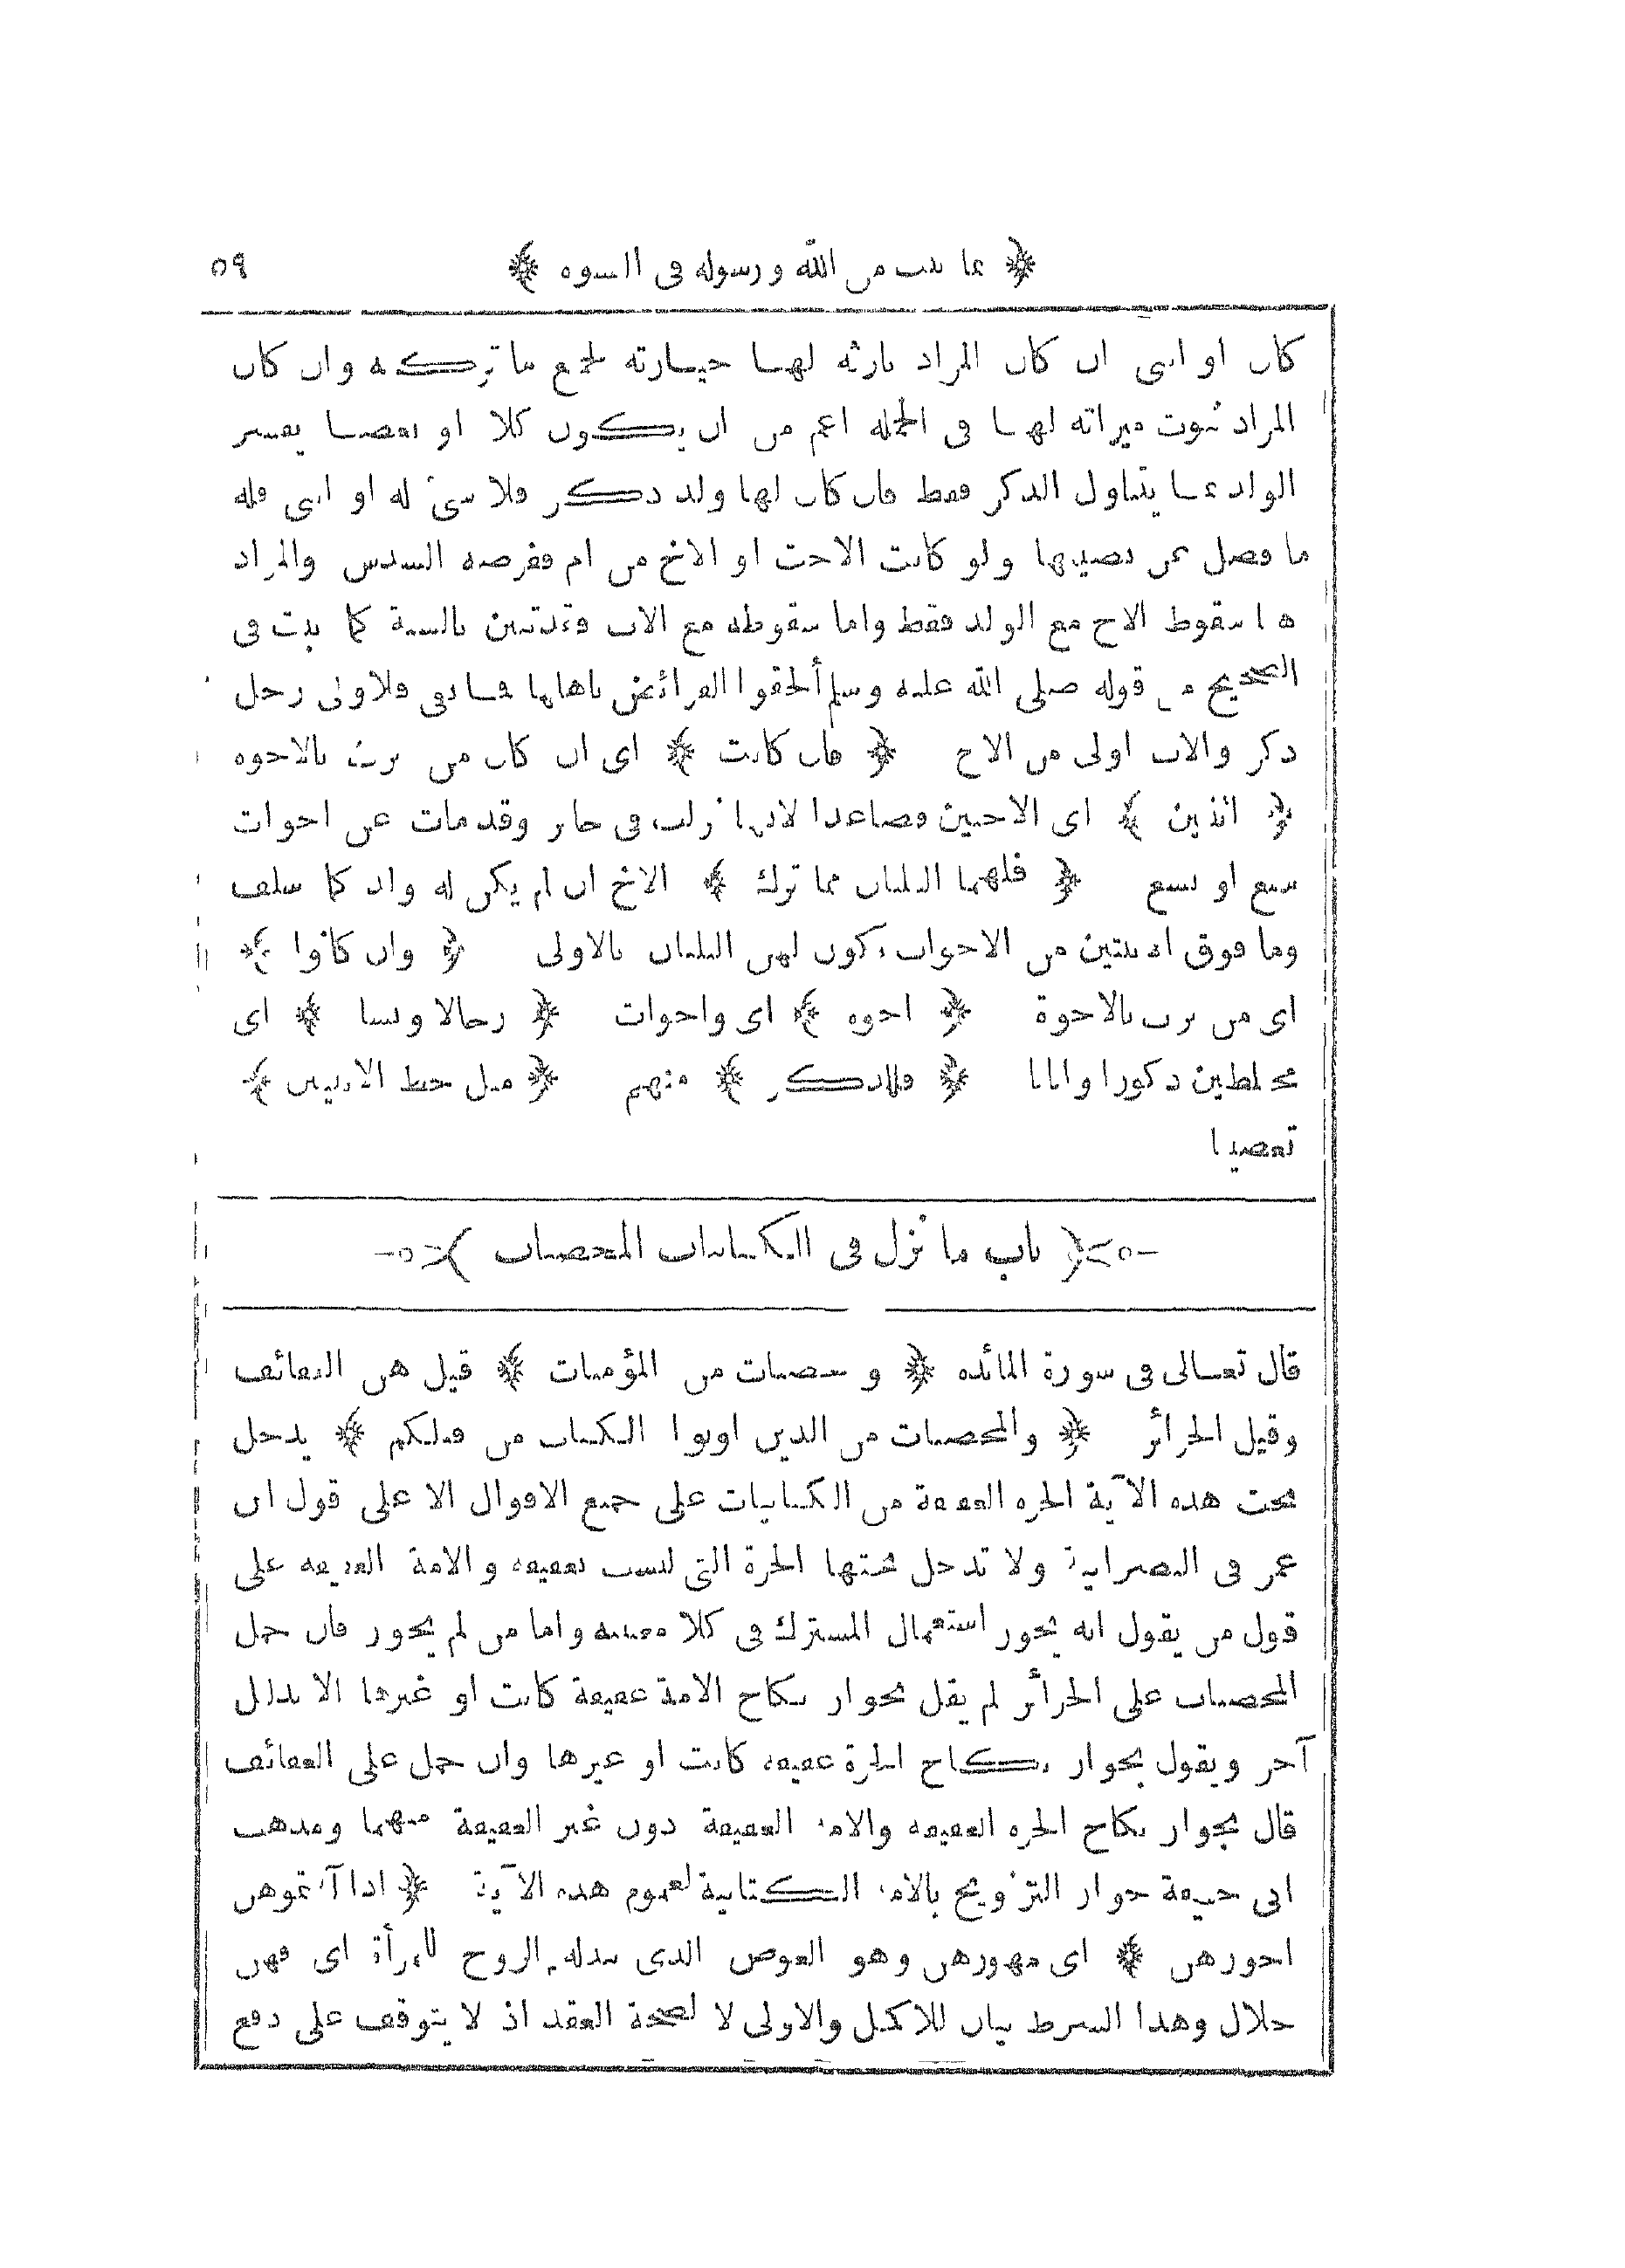 ﴿ بما ثبت من الله ورسوله فى النسوه ﴾ ٥٩
كان او انثى ان كان المراد بارثه لهما حيازته لجميع ما تركته وان كان
المراد ثبوت ميراثه لها فى الجملة اعم من ان يكون كلا او بعضا يفسر
الولد بما يتناول الذكر فقط فان كان لها ولد ذكر فلا شئ له او انثى فله
ما فضل عن نصيبها ولو كانت الاخت او الاخ من ام ففرضه السدس والمراد
هنا سقوط الاخ مع الولد فقط واما سقوطه مع الاب فقد تبين بالسنة كما ثبت فى
الصحيح من قوله صلى الله عليه وسلم ألحقوا الفرائض باهلها فما بقى فلاولى رجل
ذكر والاب اولى من الاخ ﴿ فان كانت ﴾ اى ان كان من يرث بالاخوه
﴿ اثنتين ﴾ اى الاختين فصاعدا لانها نزلت فى جابر وقد مات عن اخوات
سبع او تسع ﴿ فلهما الثلثان مما ترك ﴾ الاخ ان لم يكن له ولد كما سلف
وما فوق الاثنتين من الاخوات يكون لهن الثلثان بالاولى ﴿ وان كانوا ﴾
اى من يرث بالاخوة ﴿ اخوه ﴾ اى واخوات ﴿ رجالا ونسا ﴾ اى
مختلطين ذكورا واناثا ﴿ فللذكر ﴾ منهم ﴿ مثل حظ الانثيين ﴾
تعصيبا
﴿ باب ما نزل فى الكتابيات المحصنات ﴾
قال تعالى فى سورة المائده ﴿ و محصنات من المؤمنات ﴾ قيل هن العفائف
وقيل الحرائر ﴿ والمحصنات من الذين اوتوا الكتاب من قبلكم ﴾ يدخل
تحت هذه الآية الحره العفيفة من الكتابيات على جميع الاقوال الا على قول ابن
عمر فى النصرانية ولا تدخل تحتها الحرة التى ليست بعفيفه والامة العفيفه على
قول من يقول انه يجوز استعمال المشترك فى كلا معنييه واما من لم يجوز فان حمل
المحصنات على الحرائر لم يقل بجواز نكاح الامة عفيفة كانت او غيرها الا بدليل
آخر ويقول بجواز نكاح الحرة عفيفه كانت او غيرها وان حمل على العفائف
قال بجواز نكاح الحره العفيفه والامة العفيفة دون غير العفيفة منهما ومذهب
ابى حنيفة جواز التزويج بالامة الكتابية لعموم هذه الآية ﴿ اذا آتيتموهن
اجورهن ﴾ اى مهورهن وهو العوض الذى يبذله الزوج للمرأة اى فهن
حلال وهذا الشرط بيان للاكمل والاولى لا لصحة العقد اذ لا يتوقف على دفع